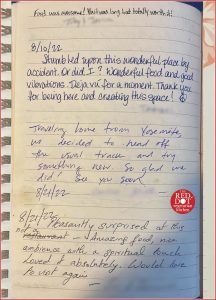 Food was awesome! Wait was long but totally worth it!
8/10/22
Stumbled upon this wonderful place by
accident. Or did I? Wonderful food and good
vibrations. Deja vu for a moment. Thank you
for being here and creating this space!
Traveling home from Yosemite
we decided to head off
the usual track and try
something new. So glad we
did! See you soon
8/21/22
8/21/22
Pleasantly surprised at this
restaurant Amazing food, nice
ambience with a spiritual touch
Loved it absolutely. Would love
to visit again
RED DOT